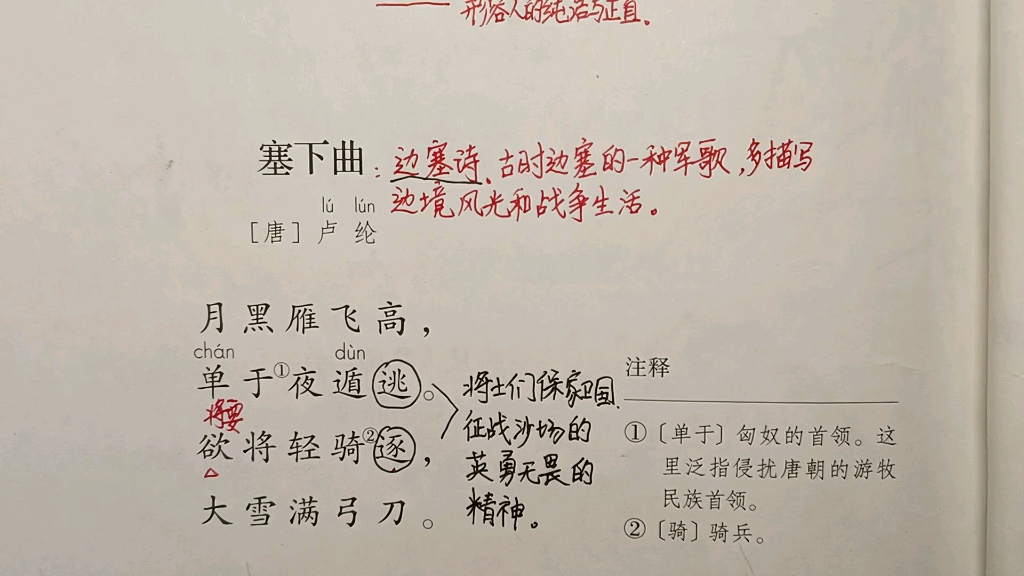 形容人的纯洁与正直。
塞下曲：边塞诗、古时边塞的一种军歌，多描写
边境风光和战争生活。
lú lún
［唐］卢 纶
月黑雁飞高，
chán dùn
单于①夜遁逃。
将要
欲将轻骑②逐，
大雪满弓刀。
将士们保家卫国、
征战沙场的
英勇无畏的
精神。
注释
①〔单于〕匈奴的首领。这
里泛指侵扰唐朝的游牧
民族首领。
②〔骑〕骑兵。